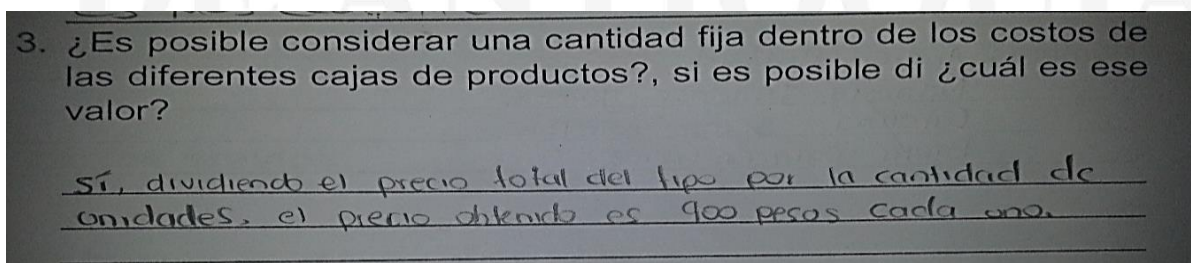 3. ¿Es posible considerar una cantidad fija dentro de los costos de
las diferentes cajas de productos?, si es posible di ¿cuál es ese
valor?
Sí, dividiendo el precio total del tipo por la cantidad de
unidades, el precio obtenido es 900 pesos cada uno.